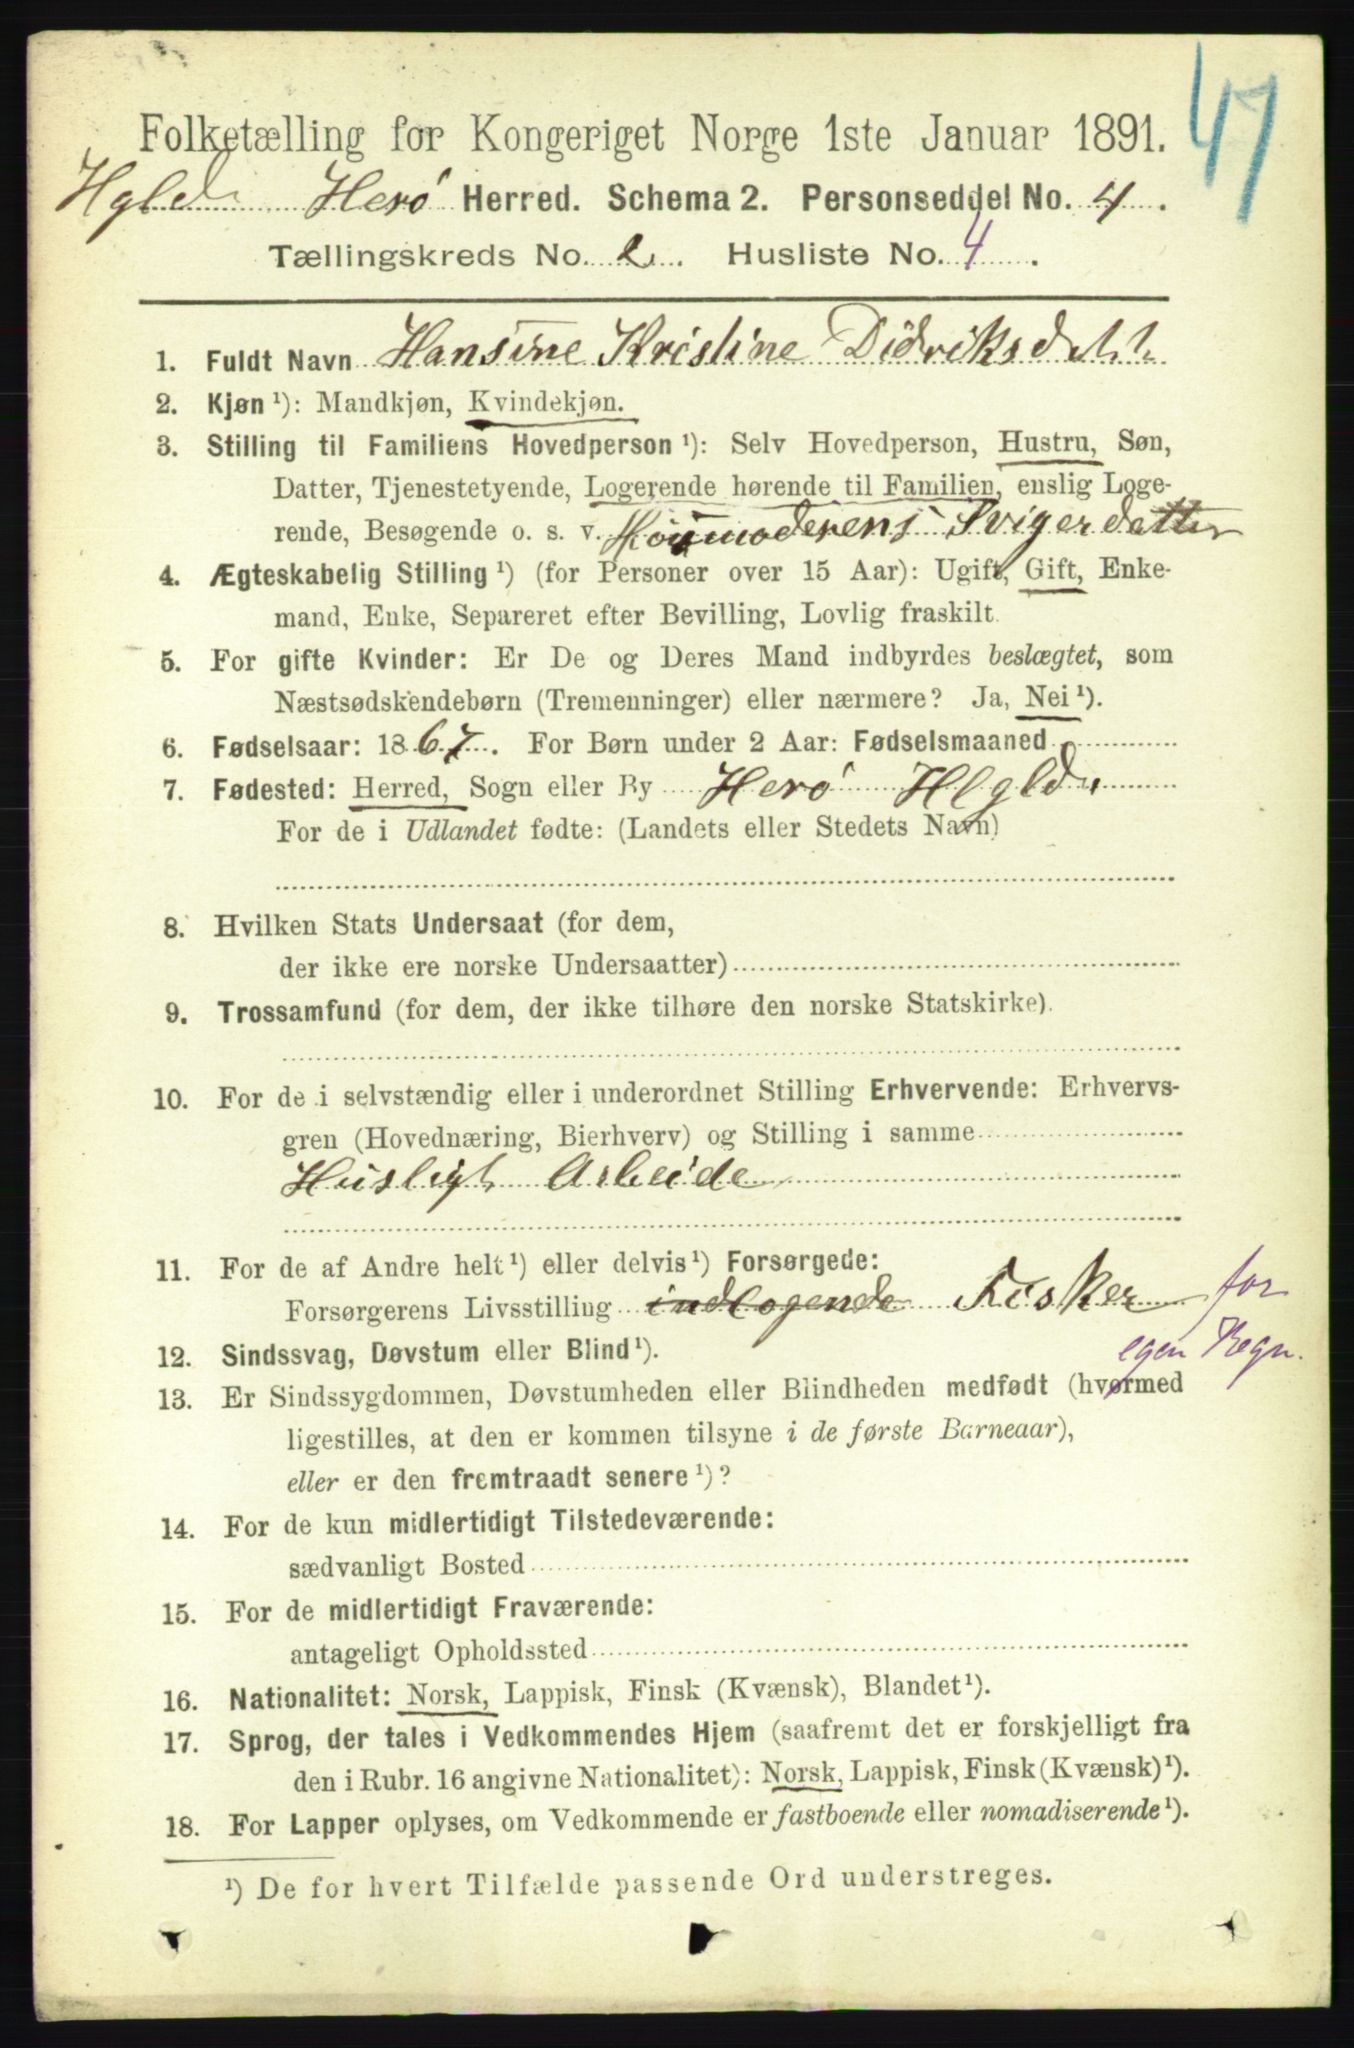 47
Folketælling for Kongeriget Norge 1ste Januar 1891.
Hgld. Herø Herred. Schema 2. Personseddel No. 4.
Tællingskreds No. 2. Husliste No. 4.
1. Fuldt Navn Hansine Kristine Didriksdatt
2. Kjøn ¹): Mandkjøn, Kvindekjøn.
3. Stilling til Familiens Hovedperson ¹): Selv Hovedperson, Hustru, Søn,
Datter, Tjenestetyende, Logerende hørende til Familien, enslig Loge-
rende, Besøgende o. s. v. Huusmoderens Svigerdatter
4. Ægteskabelig Stilling ¹) (for Personer over 15 Aar): Ugift, Gift, Enke-
mand, Enke, Separeret efter Bevilling, Lovlig fraskilt.
5. For gifte Kvinder: Er De og Deres Mand indbyrdes beslægtet, som
Næstsødskendebørn (Tremenninger) eller nærmere? Ja, Nei ¹).
6. Fødselsaar: 1867. For Børn under 2 Aar: Fødselsmaaned
7. Fødested: Herred, Sogn eller By Herø Hlgld.
For de i Udlandet fødte: (Landets eller Stedets Navn)
8. Hvilken Stats Undersaat (for dem,
der ikke ere norske Undersaatter)
9. Trossamfund (for dem, der ikke tilhøre den norske Statskirke).
10. For de i selvstændig eller i underordnet Stilling Erhvervende: Erhvervs-
gren (Hovednæring, Bierhverv) og Stilling i samme
Husligt Arbeide
11. For de af Andre helt ¹) eller delvis ¹) Forsørgede:
Forsørgerens Livsstilling indlogende Fisker for
egen Regn.
12. Sindssvag, Døvstum eller Blind ¹).
13. Er Sindssygdommen, Døvstumheden eller Blindheden medfødt (hvormed
ligestilles, at den er kommen tilsyne i de første Barneaar),
eller er den fremtraadt senere ¹)?
14. For de kun midlertidigt Tilstedeværende:
sædvanligt Bosted
15. For de midlertidigt Fraværende:
antageligt Opholdssted
16. Nationalitet: Norsk, Lappisk, Finsk (Kvænsk), Blandet ¹).
17. Sprog, der tales i Vedkommendes Hjem (saafremt det er forskjelligt fra
den i Rubr. 16 angivne Nationalitet): Norsk, Lappisk, Finsk (Kvænsk) ¹).
18. For Lapper oplyses, om Vedkommende er fastboende eller nomadiserende ¹).
¹) De for hvert Tilfælde passende Ord understreges.